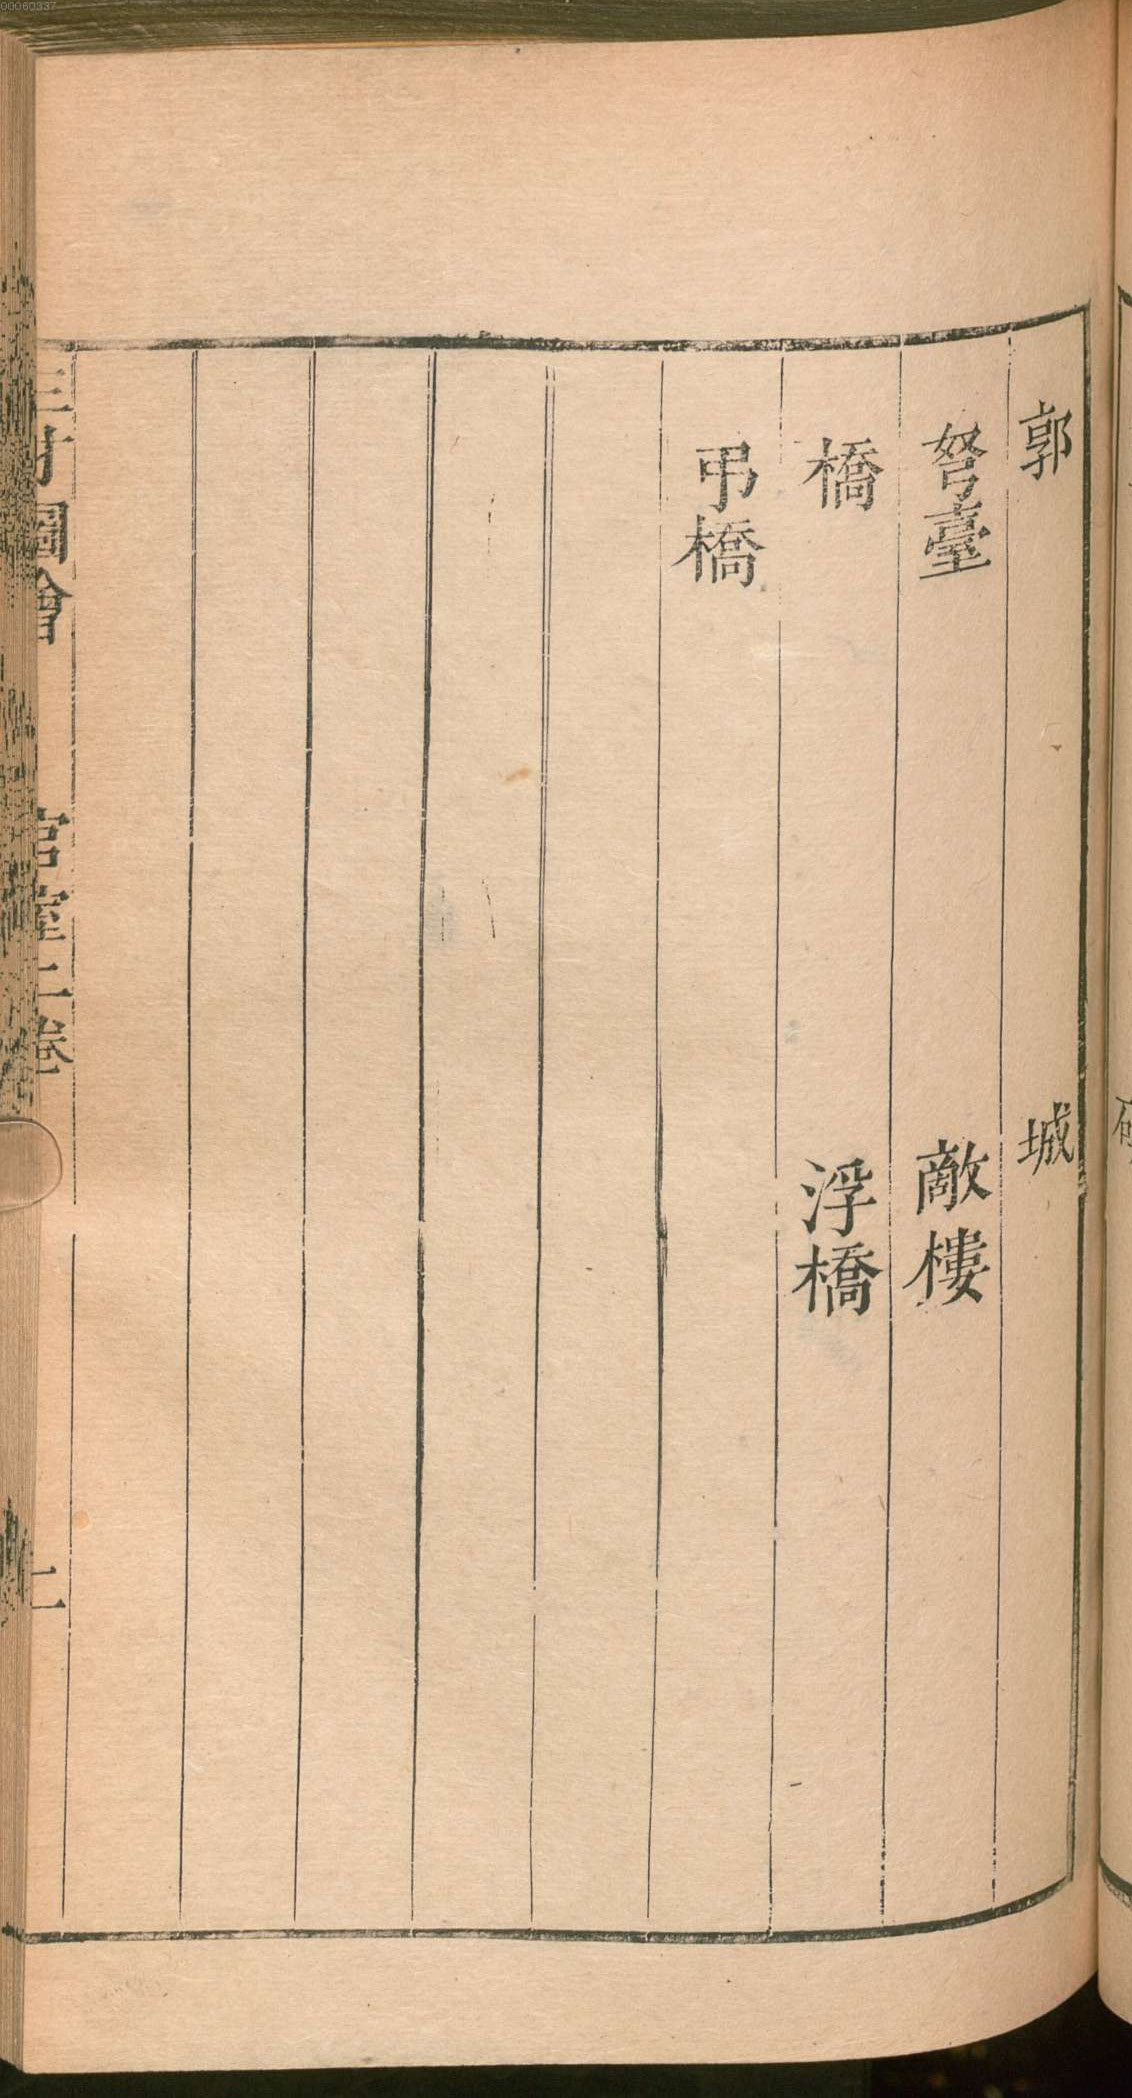 00060337
郭 城
弩臺 敵樓
橋 浮橋
弔橋
三才圖會 宮室二卷 二